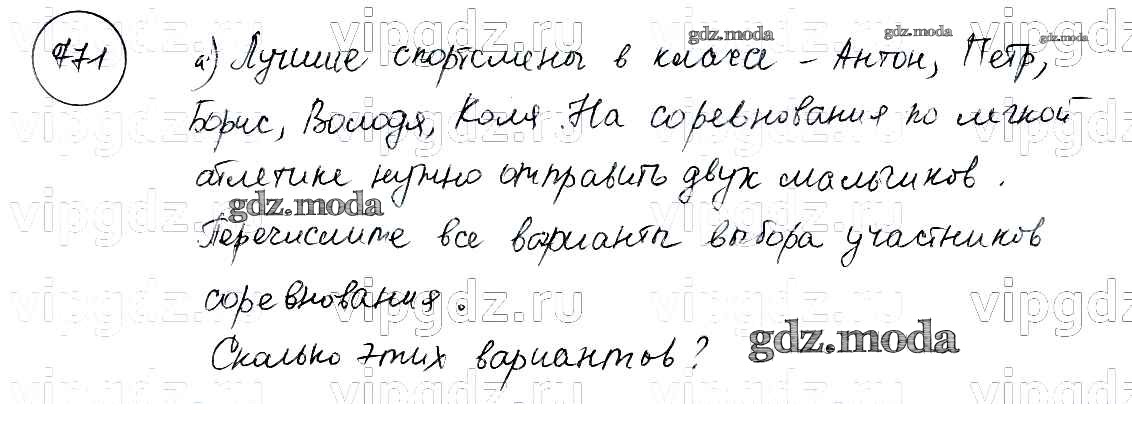 771
а) Лучшие спортсмены в классе – Антон, Петр,
Борис, Володя, Коля. На соревнования по легкой
атлетике нужно отправить двух мальчиков.
Перечислите все варианты выбора участников
соревнования.
Сколько этих вариантов?
gdz.moda
gdz.moda
gdz.moda
gdz.moda
gdz.moda
vipgdz.ru